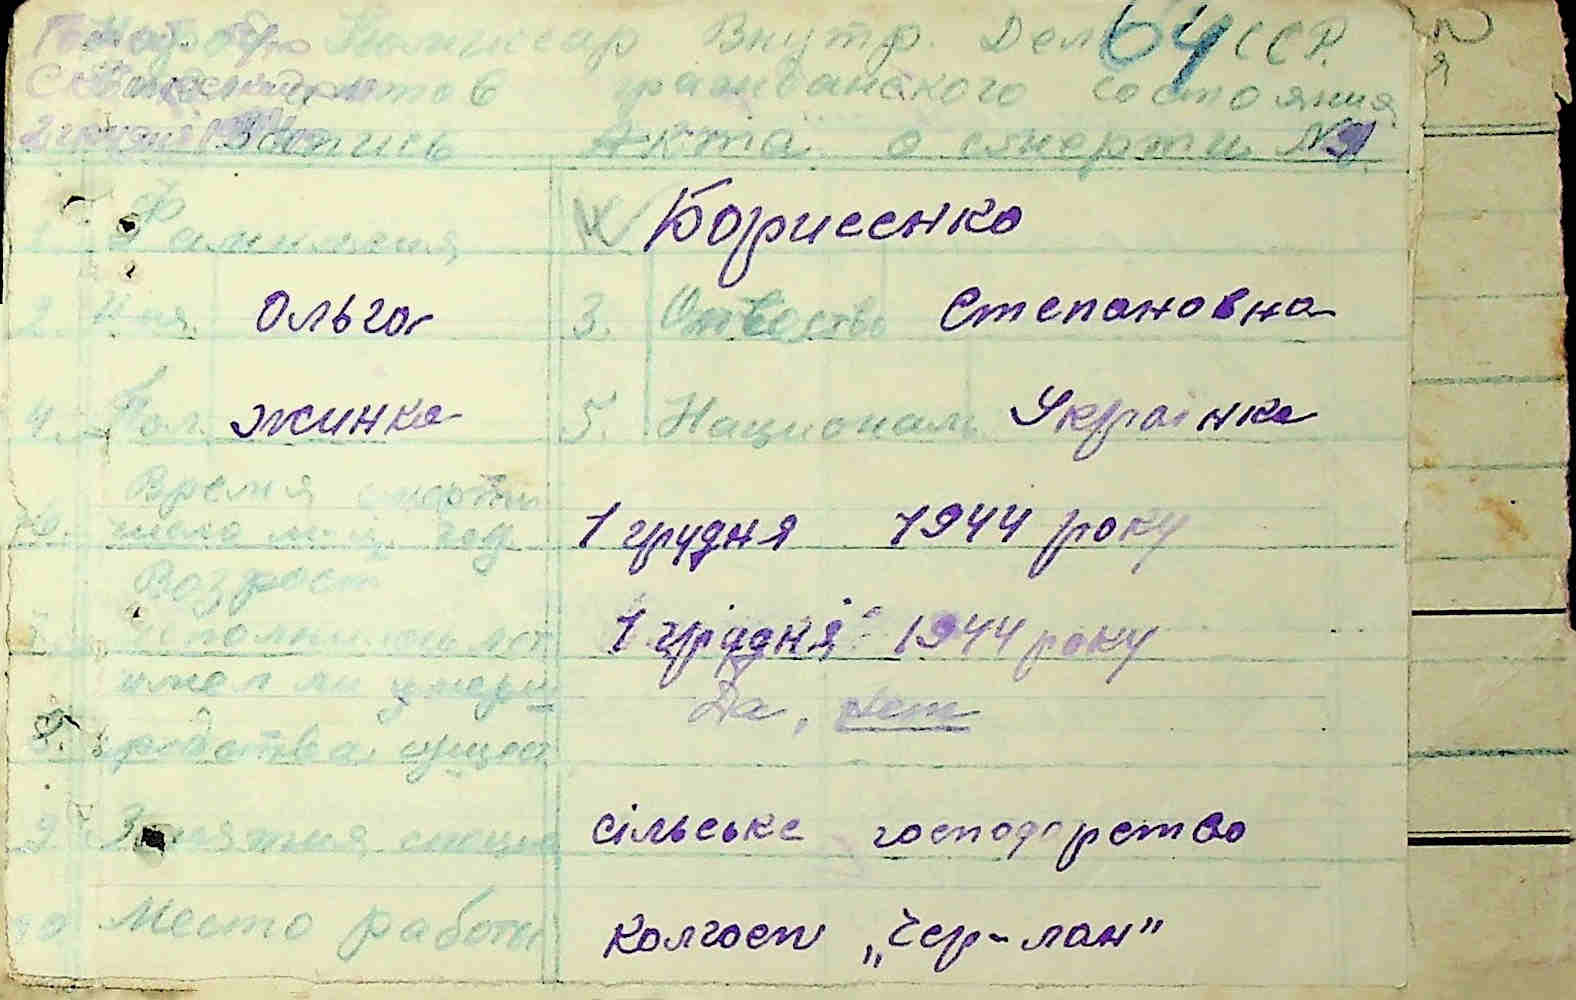 Народн. Комиссар Внутр. Дел 64 ССР.
гражданского состояния
Запись Акта о смерти №91
Фамилия Борисенко
2. Имя Ольга 3. Отчество Степановна
4. Пол жинка 5. Националь Українка
Время смерти
6. число м-ц, год 1 грудня 1944 року
Возраст
исполнилось лет 1 грідня 1944 року
имел ли умерш Да, Нет
8. родства,
9. Занятия, сільське господарство
10 Место работы колгосп „Чер-лан"